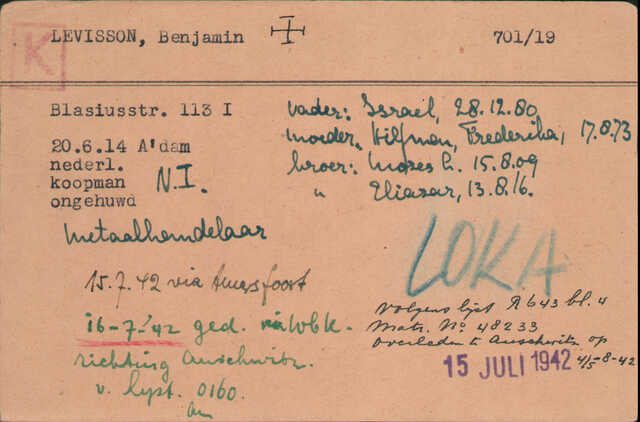 K
LEVISSON, Benjamin 701/19
Blasiusstr. 113 I
20.6.14 A'dam
nederl.
koopman
ongehuwd
N.I.
metaalhandelaar
vader: Israël, 28.12.80
moeder, Hilfman, Frederika, 17.8.73
broer: Mozes L. 15.8.09
" Eliazar, 13.8.16.
LOKA
15.7.42 via Amersfoort
16-7-'42 ged. via Wbk.
richting Auschwitz.
v. lyst. 0160.
Volgens lijst R643 bl. 4
Matr. No 48233
overleden te Auschwitz op
4/5-8-42
15 JULI 1942